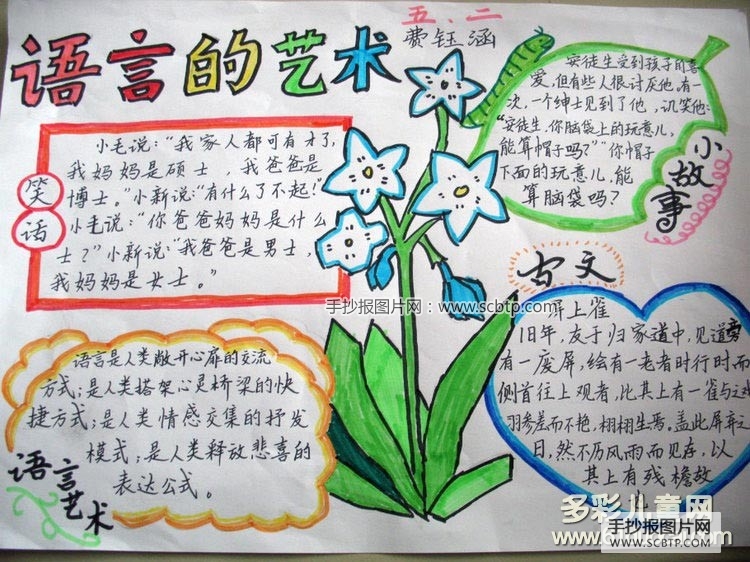 语言的艺术
五、二
费钰涵
笑话
小毛说:“我家人都可有才了,
我妈妈是硕士,我爸爸是
博士。”小新说:“有什么了不起!”
小毛说:“你爸爸妈妈是什么
士?”小新说:“我爸爸是男士,
我妈妈是女士。”
安徒生受到孩子的喜
爱,但有些人很讨厌他,有一
次,一个绅士见到了他,讥笑他:
“安徒生,你脑袋上的玩意儿,
能算帽子吗?”“你帽子
下面的玩意儿,能
算脑袋吗?
小故事
手抄报图片网:www.scbtp.com
语言是人类敞开心扉的交流
方式;是人类搭架心灵桥梁的快
捷方式;是人类情感交集的抒发
模式;是人类释放悲喜的
表达公式。
语言艺术
古文
屏上雀
旧年,友于归家道中,见道旁
有一废屏,绘有一老者时行时而
侧首往上观者,比其上有一雀与
羽参差而不艳,栩栩生焉。盖此屏弃之
日,然不历风雨而见存,以
其上有残檐故
多彩儿童网
手抄报图片网
WWW.SCBTP.COM